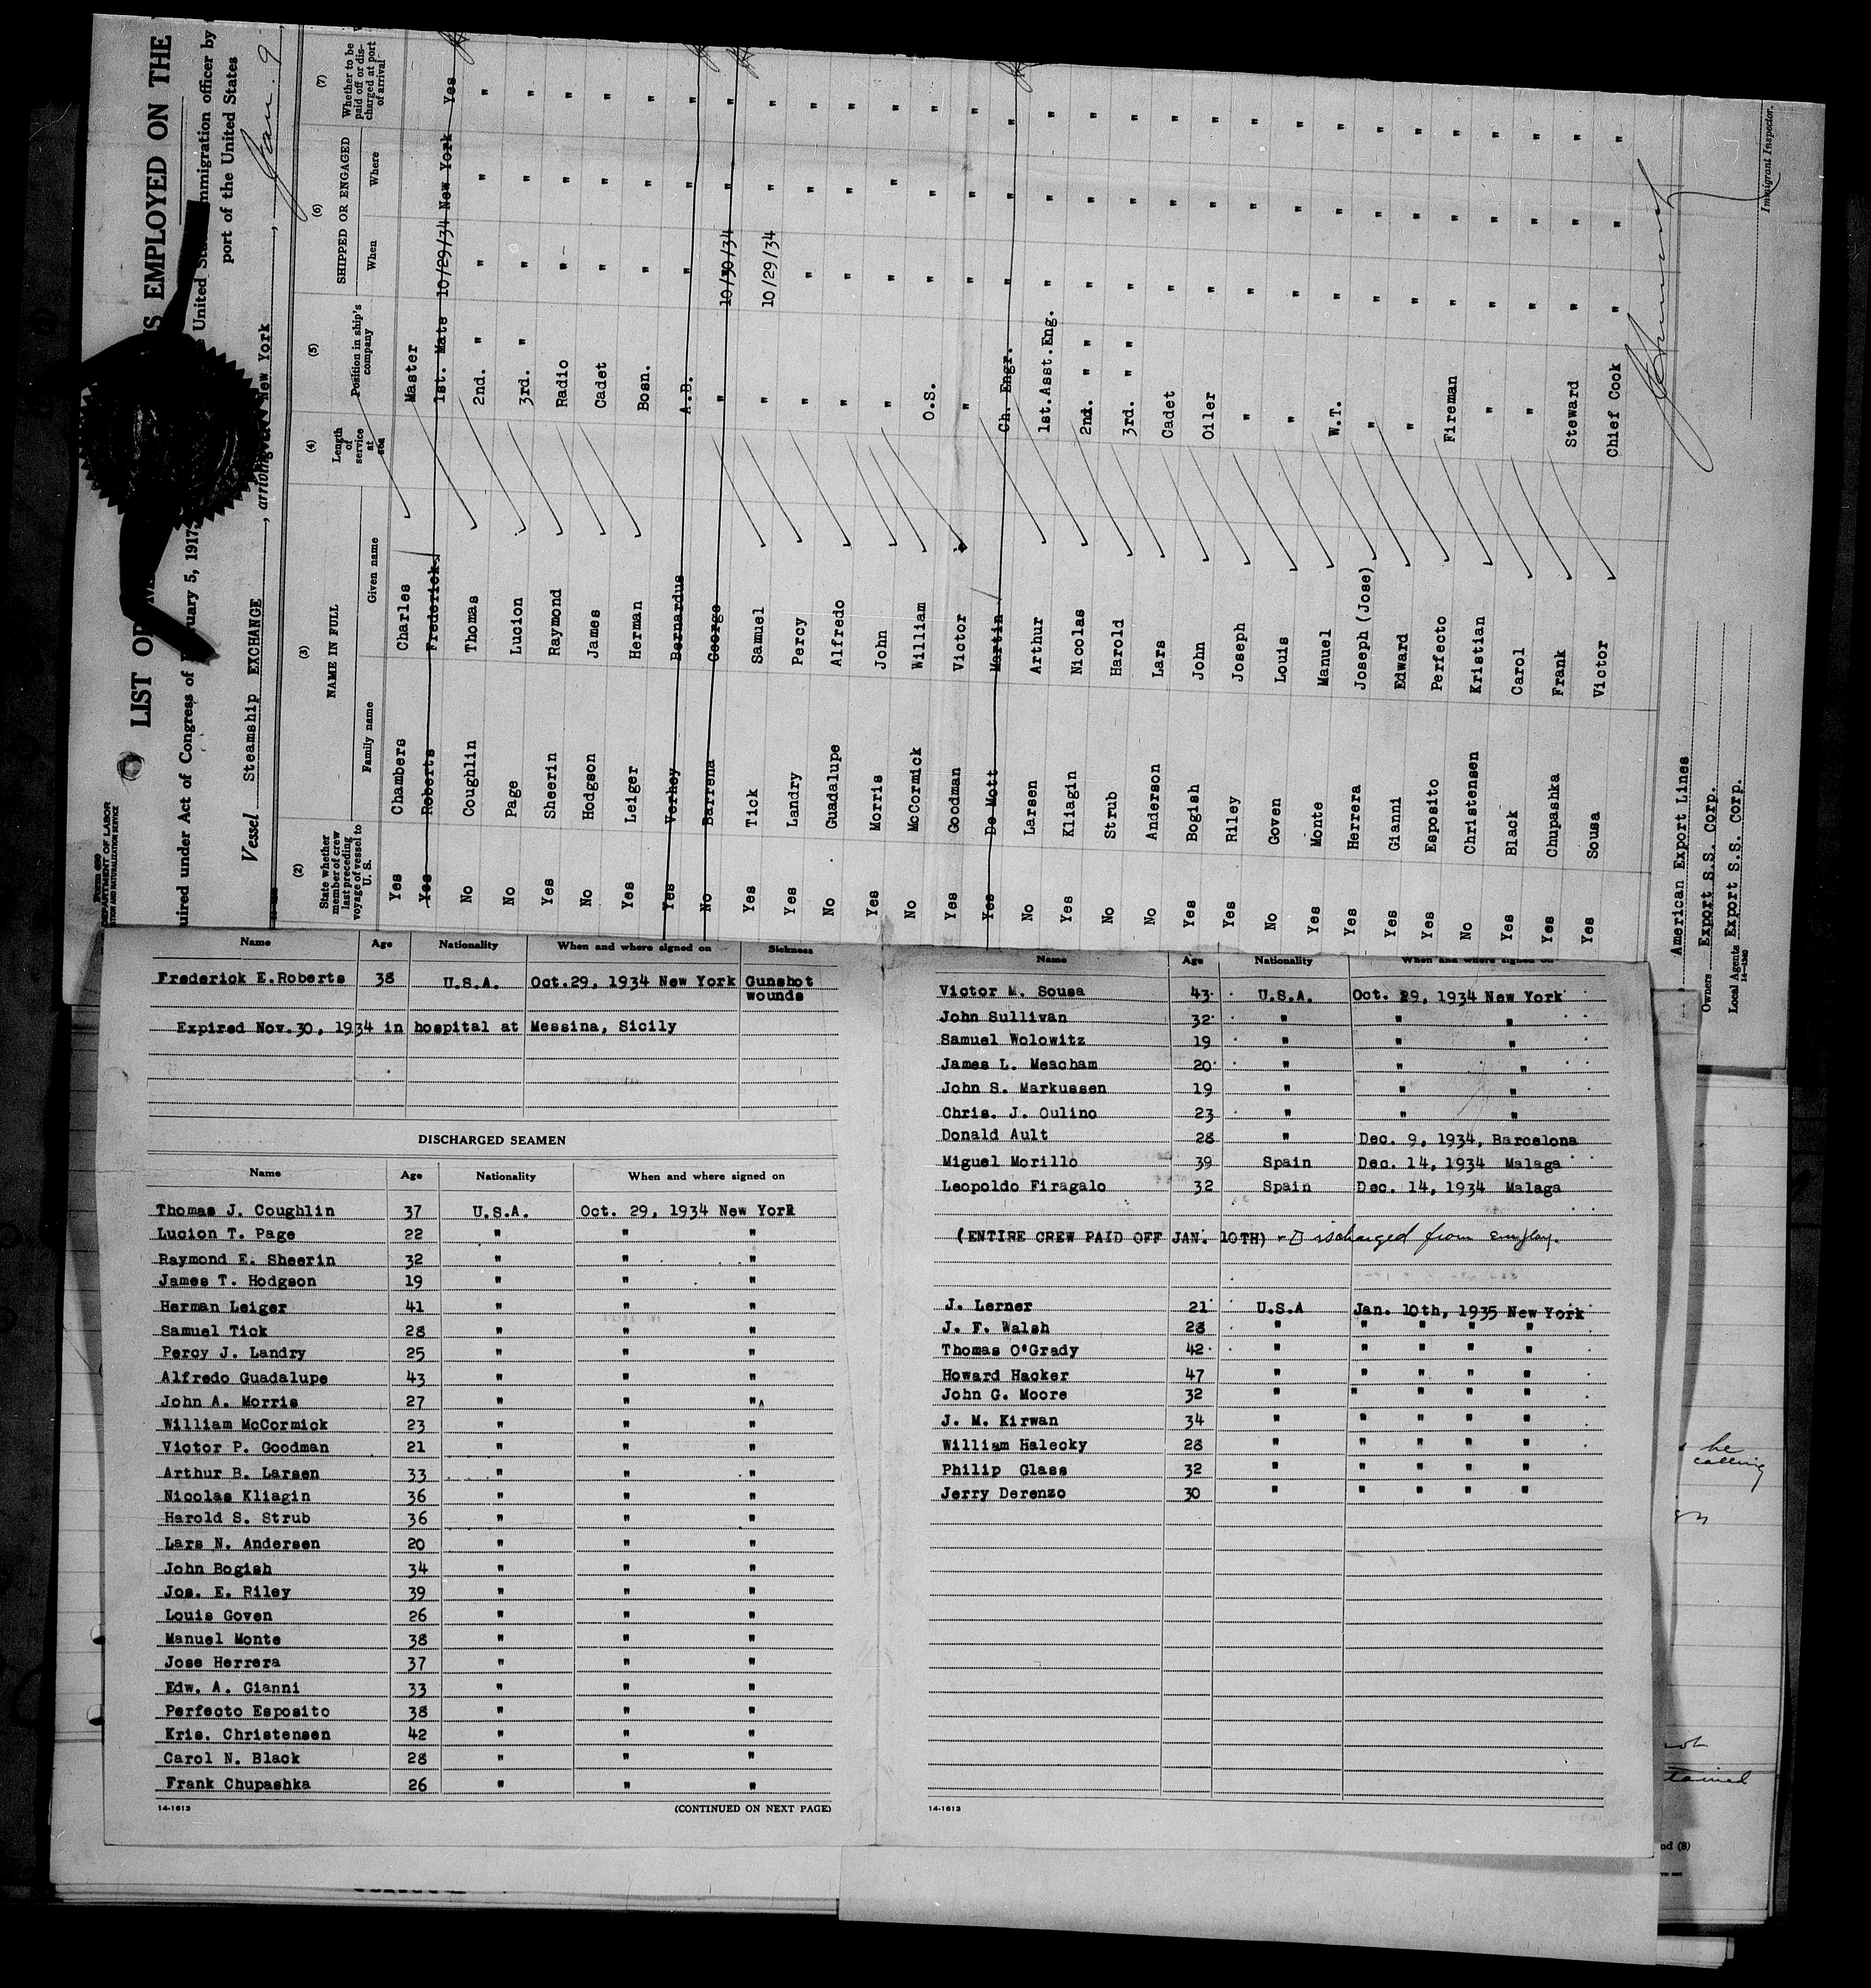 Form 689
DEPARTMENT OF LABOR
LIST OR IS EMPLOYED ON THE
uired under Act of Congress of uary 5, 1917 United Sta mmigration officer by
port of the United States
Vessel Steamship EXCHANGE, arriving at New York, Jan. 9
(2) (3) (4) (5) (6) (7)
State whether member of crew last preceding voyage of vessel to U. S. NAME IN FULL Length of service at sea Position in ship's company SHIPPED OR ENGAGED Whether to be paid off or discharged at port of arrival
Family name Given name When Where
Yes Chambers Charles Master
Yes Roberts Frederick 1st. Mate 10/29/34 New York Yes
No Coughlin Thomas 2nd. " " " "
No Page Lucion 3rd. " " " "
Yes Sheerin Raymond Radio " " "
No Hodgson James Cadet " " "
Yes Leiger Herman Bosn. " " "
Yes Verhey Bernardus A.B. " " "
No Barrena George " 10/30/34 " "
Yes Tick Samuel " 10/29/34 " "
Yes Landry Percy " " " "
No Guadalupe Alfredo " " " "
Yes Morris John " " " "
No McCormick William O.S. " " "
Yes Goodman Victor " " " "
Yes De Mott Martin Ch. Engr. " " "
No Larsen Arthur 1st.Asst.Eng. " " "
Yes Kliagin Nicolas 2nd. " " " " "
No Strub Harold 3rd. " " " " "
No Anderson Lars Cadet " " "
Yes Bogish John Oiler " " "
Yes Riley Joseph " " " "
No Goven Louis " " " "
Yes Monte Manuel W.T. " " "
Yes Herrera Joseph (Jose) " " " "
Yes Gianni Edward " " " "
Yes Esposito Perfecto Fireman " " "
No Christensen Kristian " " " "
Yes Black Carol " " " "
Yes Chupashka Frank Steward " " "
Yes Sousa Victor Chief Cook " " "
American Export Lines
Owners Export S.S. Corp.
Local Agents Export S.S. Corp.
14-1240
Immigrant Inspector.
Name Age Nationality When and where signed on Sickness
Frederick E.Roberts 38 U.S.A. Oct.29, 1934 New York Gunshot
wounds
Expired Nov.30, 1934 in hospital at Messina, Sicily
DISCHARGED SEAMEN
Name Age Nationality When and where signed on
Thomas J. Coughlin 37 U.S.A. Oct. 29, 1934 New York
Lucion T. Page 22 " " "
Raymond E. Sheerin 32 " " "
James T. Hodgson 19 " " "
Herman Leiger 41 " " "
Samuel Tick 28 " " "
Percy J. Landry 25 " " "
Alfredo Guadalupe 43 " " "
John A. Morris 27 " " "
William McCormick 23 " " "
Victor P. Goodman 21 " " "
Arthur B. Larsen 33 " " "
Nicolas Kliagin 36 " " "
Harold S. Strub 36 " " "
Lars N. Andersen 20 " " "
John Bogish 34 " " "
Jos. E. Riley 39 " " "
Louis Goven 26 " " "
Manuel Monte 38 " " "
Jose Herrera 37 " " "
Edw. A. Gianni 33 " " "
Perfecto Esposito 38 " " "
Kris. Christensen 42 " " "
Carol N. Black 28 " " "
Frank Chupashka 26 " " "
14-1613 (CONTINUED ON NEXT PAGE)
Name Age Nationality When and where signed on
Victor M. Sousa 43 U.S.A. Oct. 29, 1934 New York
John Sullivan 32 " " "
Samuel Wolowitz 19 " " "
James L. Meacham 20 " " "
John S. Markussen 19 " " "
Chris. J. Oulino 23 " " "
Donald Ault 28 " Dec. 9, 1934, Barcelona
Miguel Morillo 39 Spain Dec. 14, 1934 Malaga
Leopoldo Firagalo 32 Spain Dec. 14, 1934 Malaga
(ENTIRE CREW PAID OFF JAN. 10TH) - Discharged from employ.
J. Lerner 21 U.S.A Jan. 10th, 1935 New York
J. F. Walsh 28 " " " " "
Thomas O'Grady 42 " " " " "
Howard Hacker 47 " " " " "
John G. Moore 32 " " " " "
J. M. Kirwan 34 " " " " "
William Halecky 28 " " " " "
Philip Glass 32 " " " " "
Jerry Derenzo 30 " " " " "
14-1613
he
calling
tained
od (8)